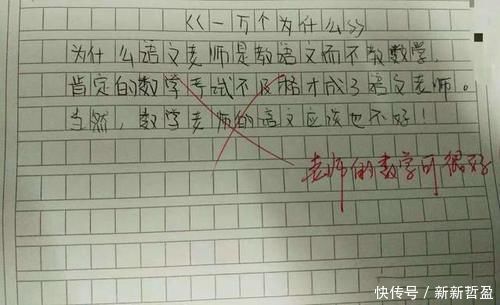 《一万个为什么》
为什么语文老师是教语文而不教数学,
肯定的数学考试不及格才成了语文老师。
当然,数学老师的语文应该也不好!
老师的数学可很好
快传号/新新哲盈